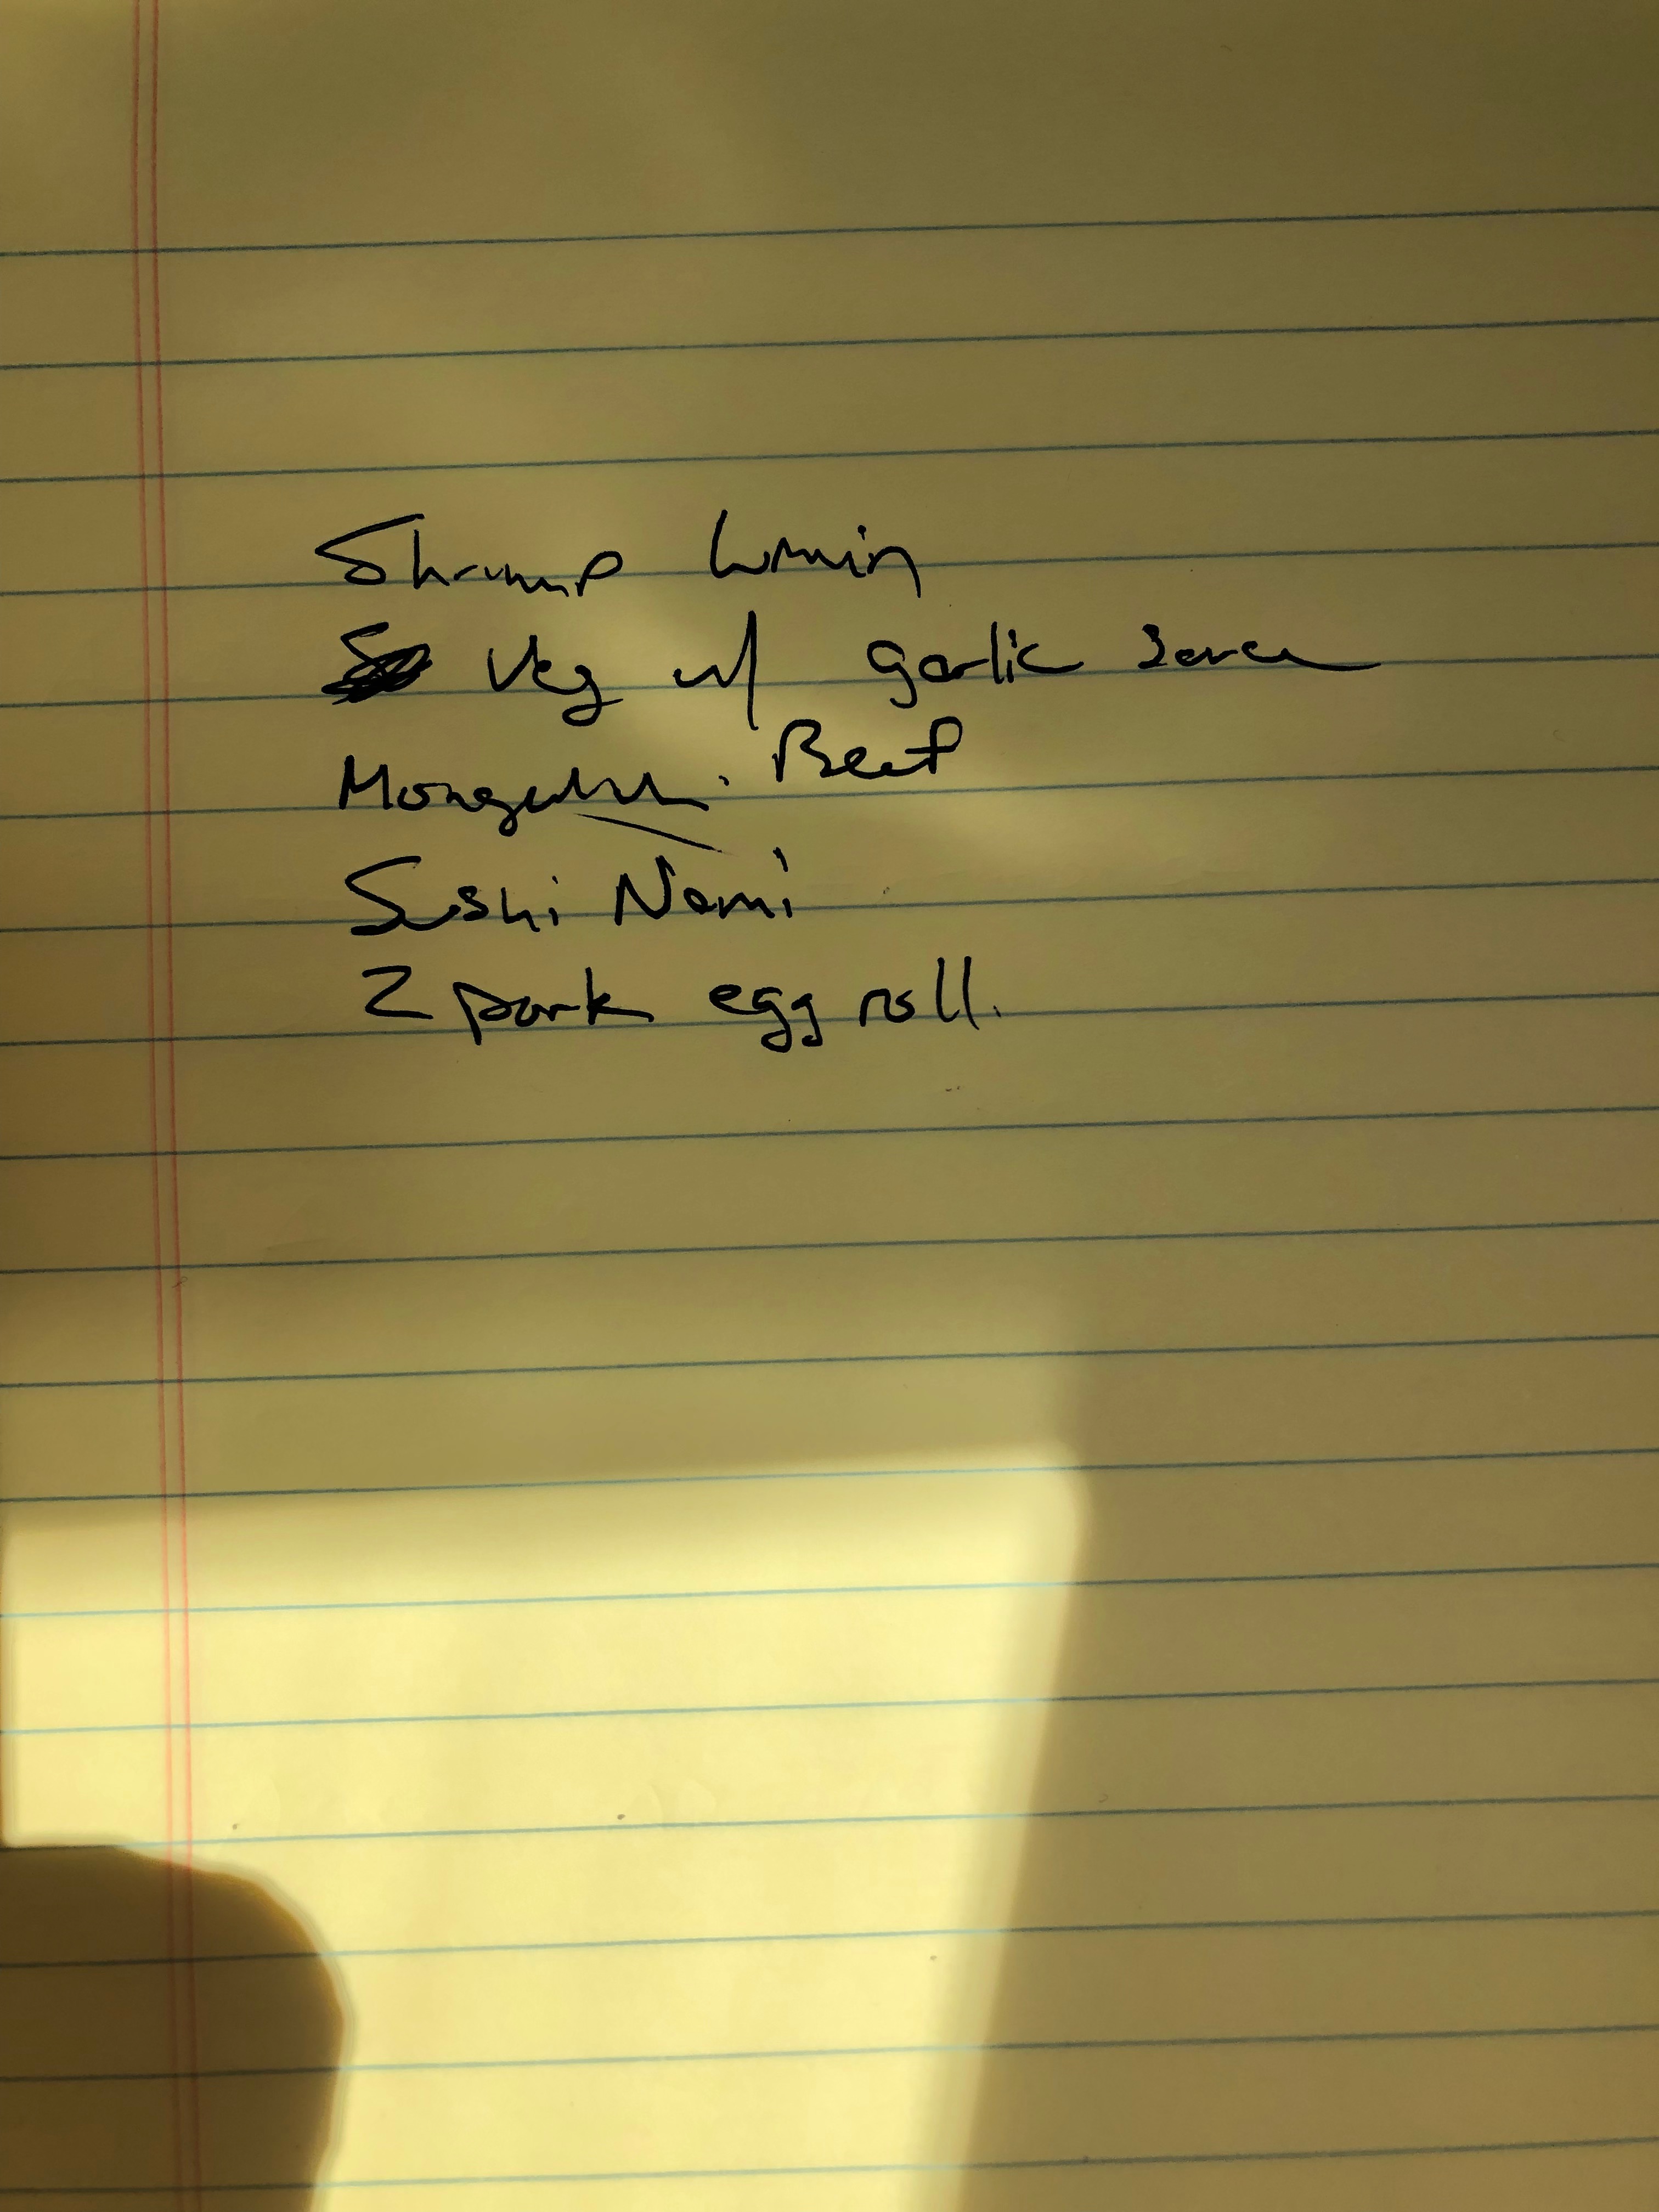 Shrimp Lomein
Veg w/ garlic sauce
Mongolian Beef
Sushi Nomi
2 pork egg roll.